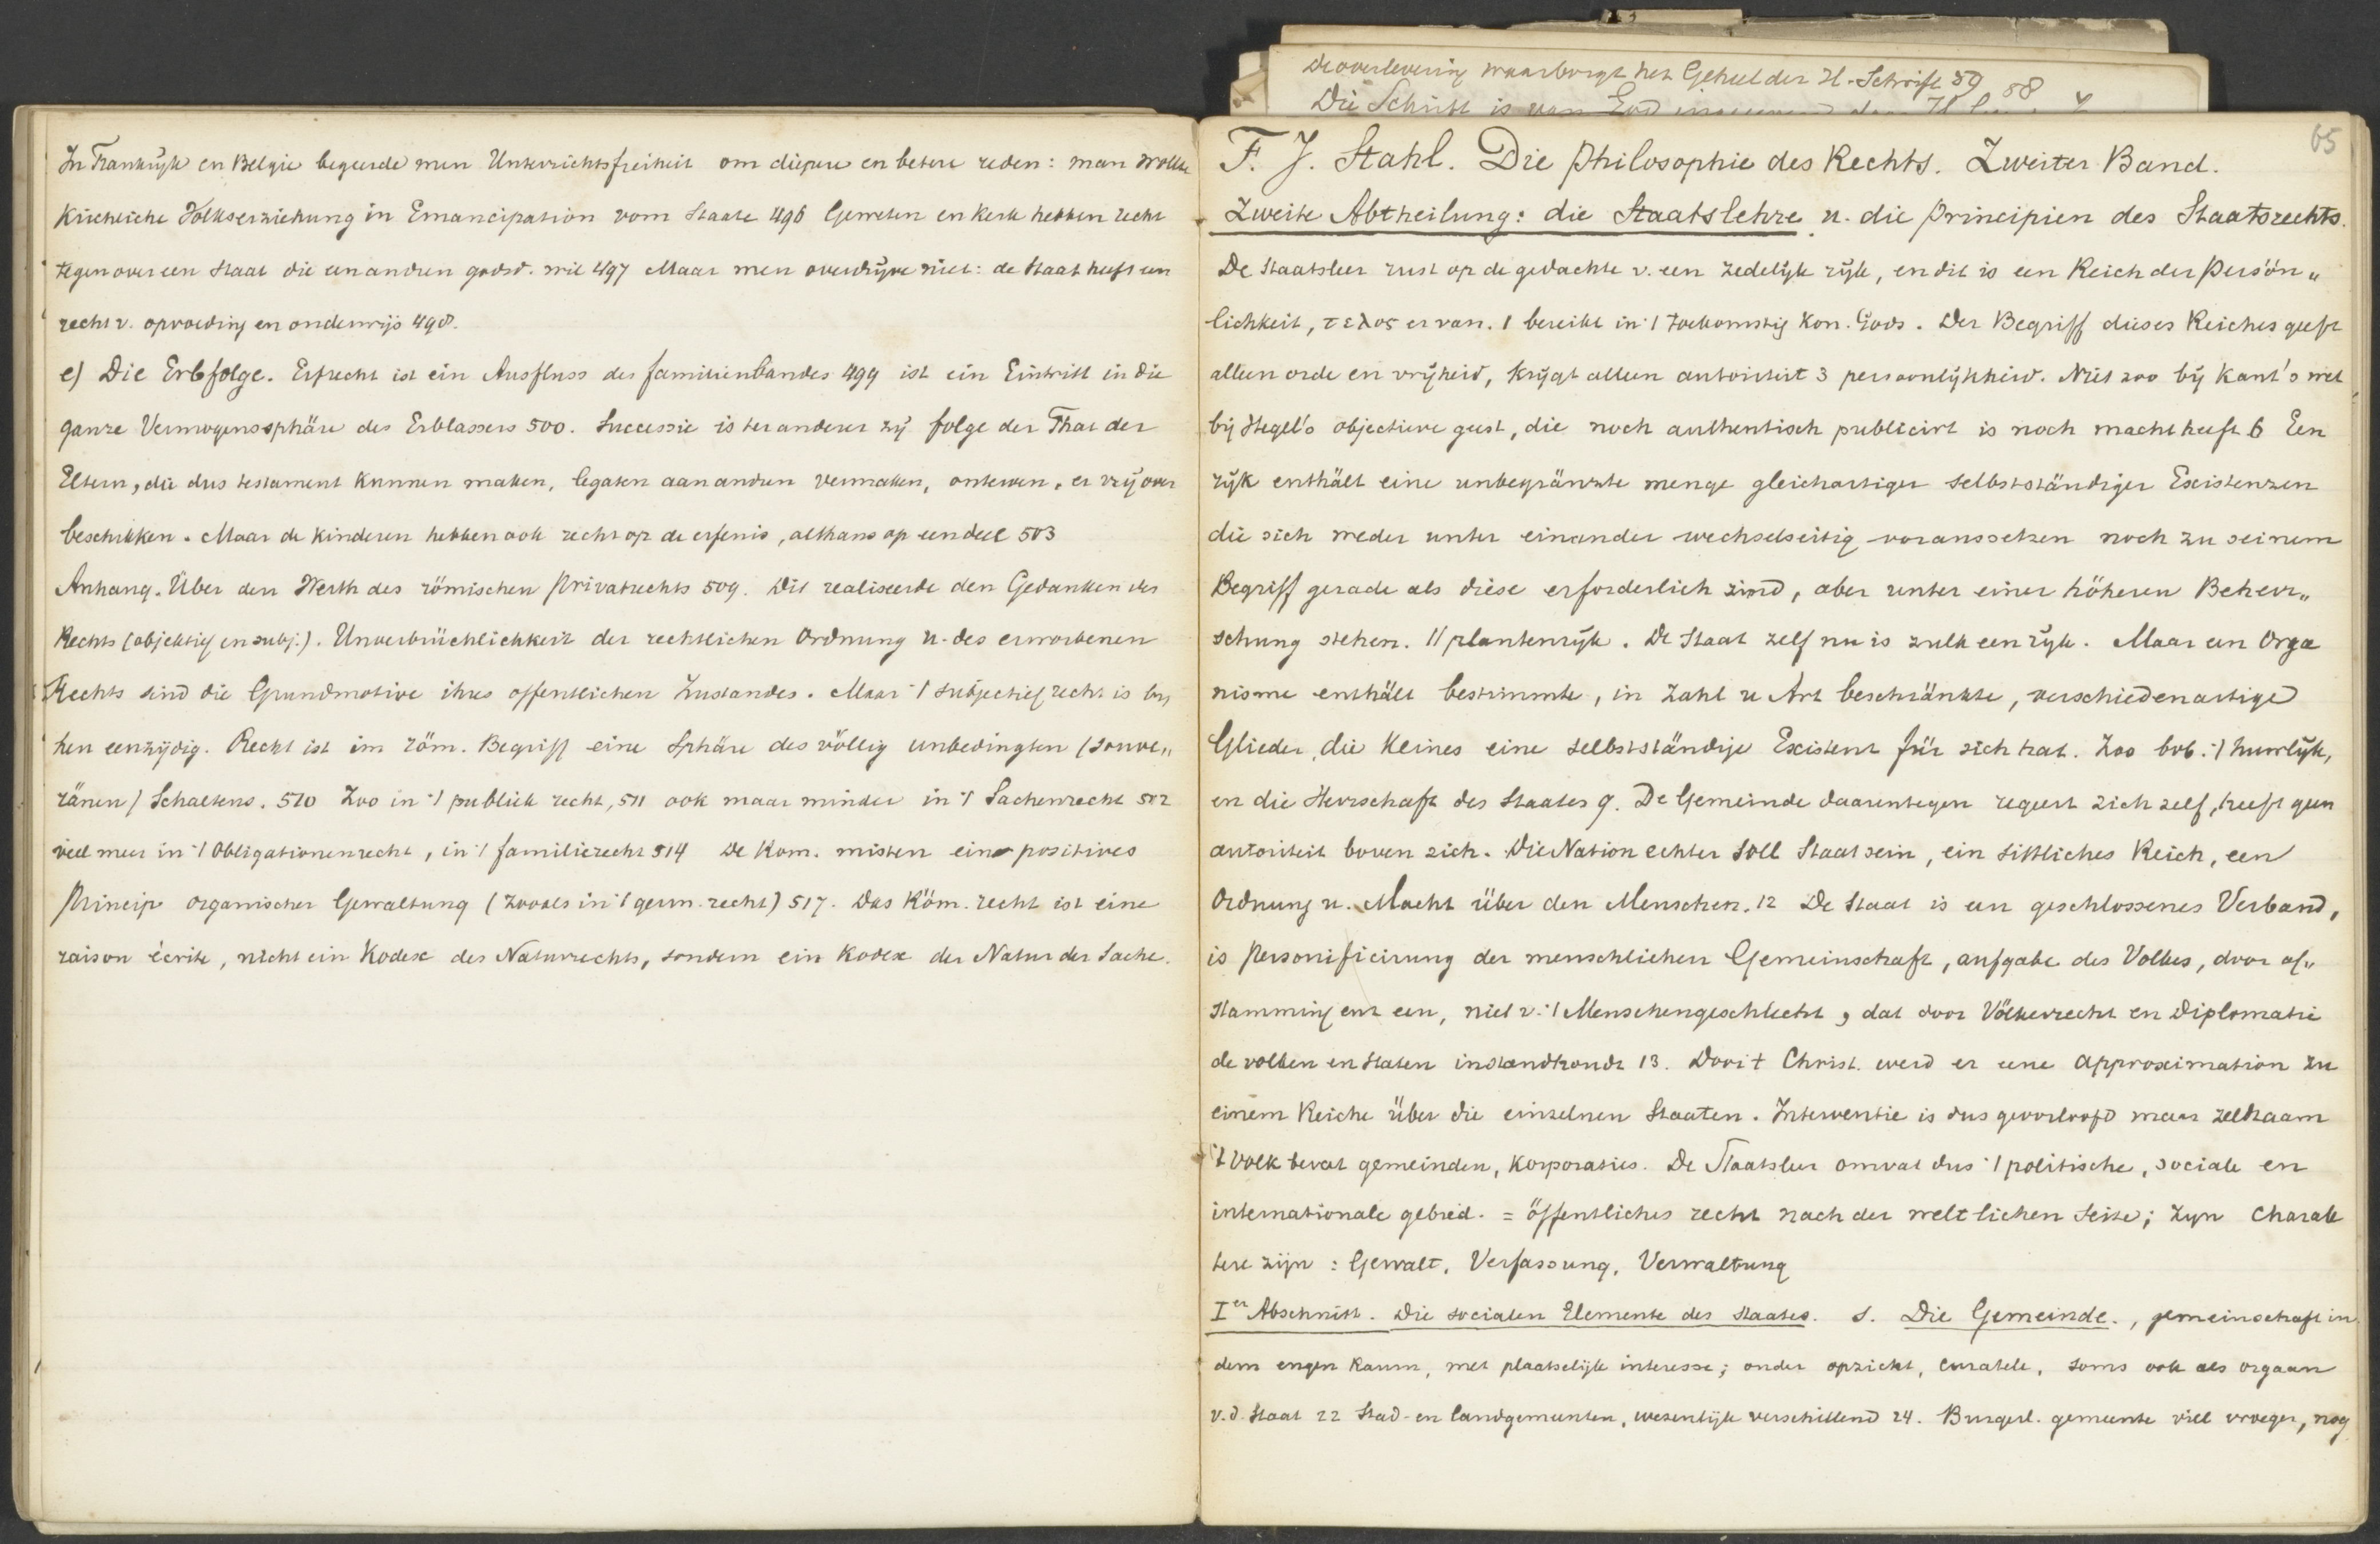 In Frankrijk en Belgie begeerde men Unterrichtsfreiheit om diepere en betere reden: man wollte
Kirchliche Volkserziehung in Emancipation vom Staate 496 Geweten en Kerk hebben recht
tegenover een Staat die een andren godsd. wil 497 Maar men overdrijve niet: de Staat heeft een
recht v. opvoeding en onderwijs 498.
e) Die Erbfolge. Erfrecht ist ein Ausfluss des familienbandes 499 ist ein Eintritt in die
ganze Vermogenssphäre des Erblassers 500. Successie is ter anderer zij folge der That der
Eltern, die dus testament kunnen maken, legaten aan andren vermaken, onterven, er vrij over
beschikken. Maar de kinderen hebben ook recht op de erfenis, althans op een deel 503
Anhang. Über den Werth des römischen Privatrechts 509. Dit realiseerde den Gedanken des
Rechts (objektief en subj.). Unverbrüchlichkeit der rechtlichen Ordnung u. des erworbenen
Rechts sind die Grundmotive ihres offentlichen Zustandes. Maar 't subjectief recht is by
hen eenzijdig. Recht ist im röm. Begriff eine Sphäre des völlig unbedingten (souve„
ränen) Schaltens. 510 Zoo in 't publiek recht, 511 ook maar minder in 't Sachenrecht 512
veel meer in 't Obligationenrecht, in 't familierecht 514 De Rom. misten ein positives
Princip organischer Gewaltung (zooals in 't germ. recht) 517. Das Röm. recht ist eine
raison écrite, nicht ein Kodex des Naturrechts, sondern ein Kodex der Natur der Sache.
De overlevering waarborgt het Geheel der H. Schrift 59 58
Die Schrift is van God
65
F. J. Stahl. Die Philosophie des Rechts. Zweiter Band.
Zweite Abtheilung: die Staatslehre u. die Principien des Staatsrechts.
De Staatsleer rust op de gedachte v. een zedelijk rijk, en dit is een Reich der Persön„
lichkeit, τελος ervan. 1 bereikt in 't toekomstig Kon. Gods. Der Begriff dieses Reiches geeft
alleen orde en vrijheid, krijgt alleen autoriteit 3 persoonlijkheid. Niet zoo bij Kant's wet
bij Hegel's objectieve geest, die noch authentisch publicirt is noch macht heeft 6 Een
rijk enthält eine unbegränzte menge gleichartiger selbstständiger Existenzen
die sich weder unter einander wechselseitig voraussetzen noch zu seinem
Begriff gerade als diese erforderlich zind, aber unter einer höheren Beherr„
schung stehen. 't plantenrijk. De Staat zelf nu is zulk een rijk. Maar een Orga
nisme enthält bestimmte, in Zahl u Art beschränkte, verschiedenartige
Glieder, die Keines eine selbstständige Existenz für sich hat. Zoo bvb. 't huwlijk,
en die Herrschaft des Staates 9. De Gemeinde daarentegen regeert zich zelf, heeft geen
autoriteit boven zich. Die Nation echter soll Staat sein, ein sittliches Reich, een
Ordnung u. Macht über den Menschen. 12 De Staat is een geschlossenes Verband,
is Personificirung der menschlichen Gemeinschaft, aufgabe des Volkes, door af„
stamming enz een, niet v. 't Menschengeschlecht, dat door Völkerrecht en Diplomatie
de volken en Staten instandhoudt 13. Door 't Christ. werd er eene Approximation zu
einem Reiche über die einzelnen Staaten. Interventie is dus geoorloofd maar zeldzaam
't Volk bevat gemeinden, Korporaties. De Staatsleer omvat dus 't politische, sociale en
internationale gebied. = öffentliches recht nach der weltlichen Seite; zyn Charak
tere zijn: Gewalt, Verfassung, Verwaltung
Ier Abschnitt. Die socialen Elemente des Staates. 1. Die Gemeinde., gemeinschaft in
dem engen Raum, met plaatselijk interesse; onder opzicht, curatele, soms ook als orgaan
v.d. Staat 22 Stad- en landgemeenten, wezenlijk verschillend 24. Burgerl. gemeente viel vroeger, nog